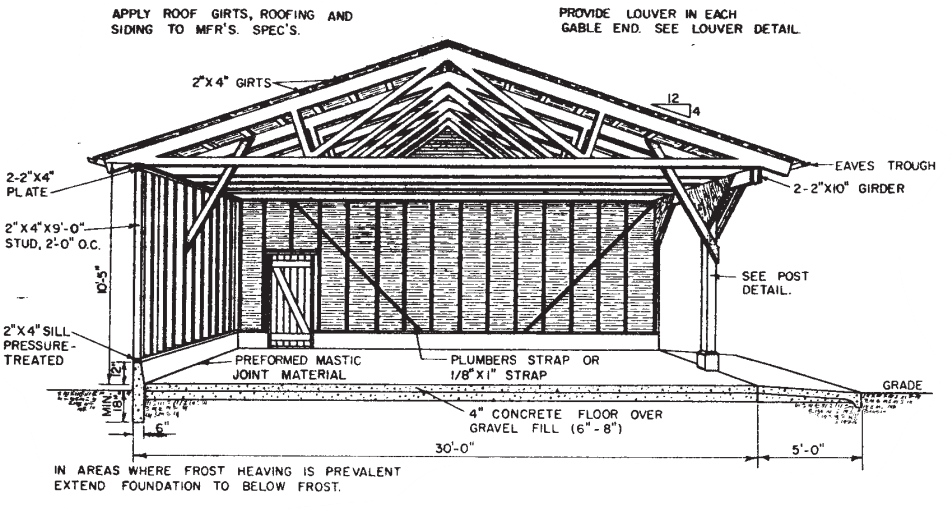 APPLY ROOF GIRTS, ROOFING AND
SIDING TO MFR'S. SPEC'S.
PROVIDE LOUVER IN EACH
GABLE END. SEE LOUVER DETAIL.
2"X4" GIRTS
12
4
EAVES TROUGH
2-2"X4"
PLATE
2-2"X10" GIRDER
2"X4"X9'-0"
STUD, 2'-0" O.C.
10'-5"
SEE POST
DETAIL.
2"X4" SILL
PRESSURE-
TREATED
PREFORMED MASTIC
JOINT MATERIAL
PLUMBERS STRAP OR
1/8"X1" STRAP
12"
GRADE
MIN.
18"
4" CONCRETE FLOOR OVER
GRAVEL FILL (6"-8")
6"
30'-0"
5'-0"
IN AREAS WHERE FROST HEAVING IS PREVALENT
EXTEND FOUNDATION TO BELOW FROST.